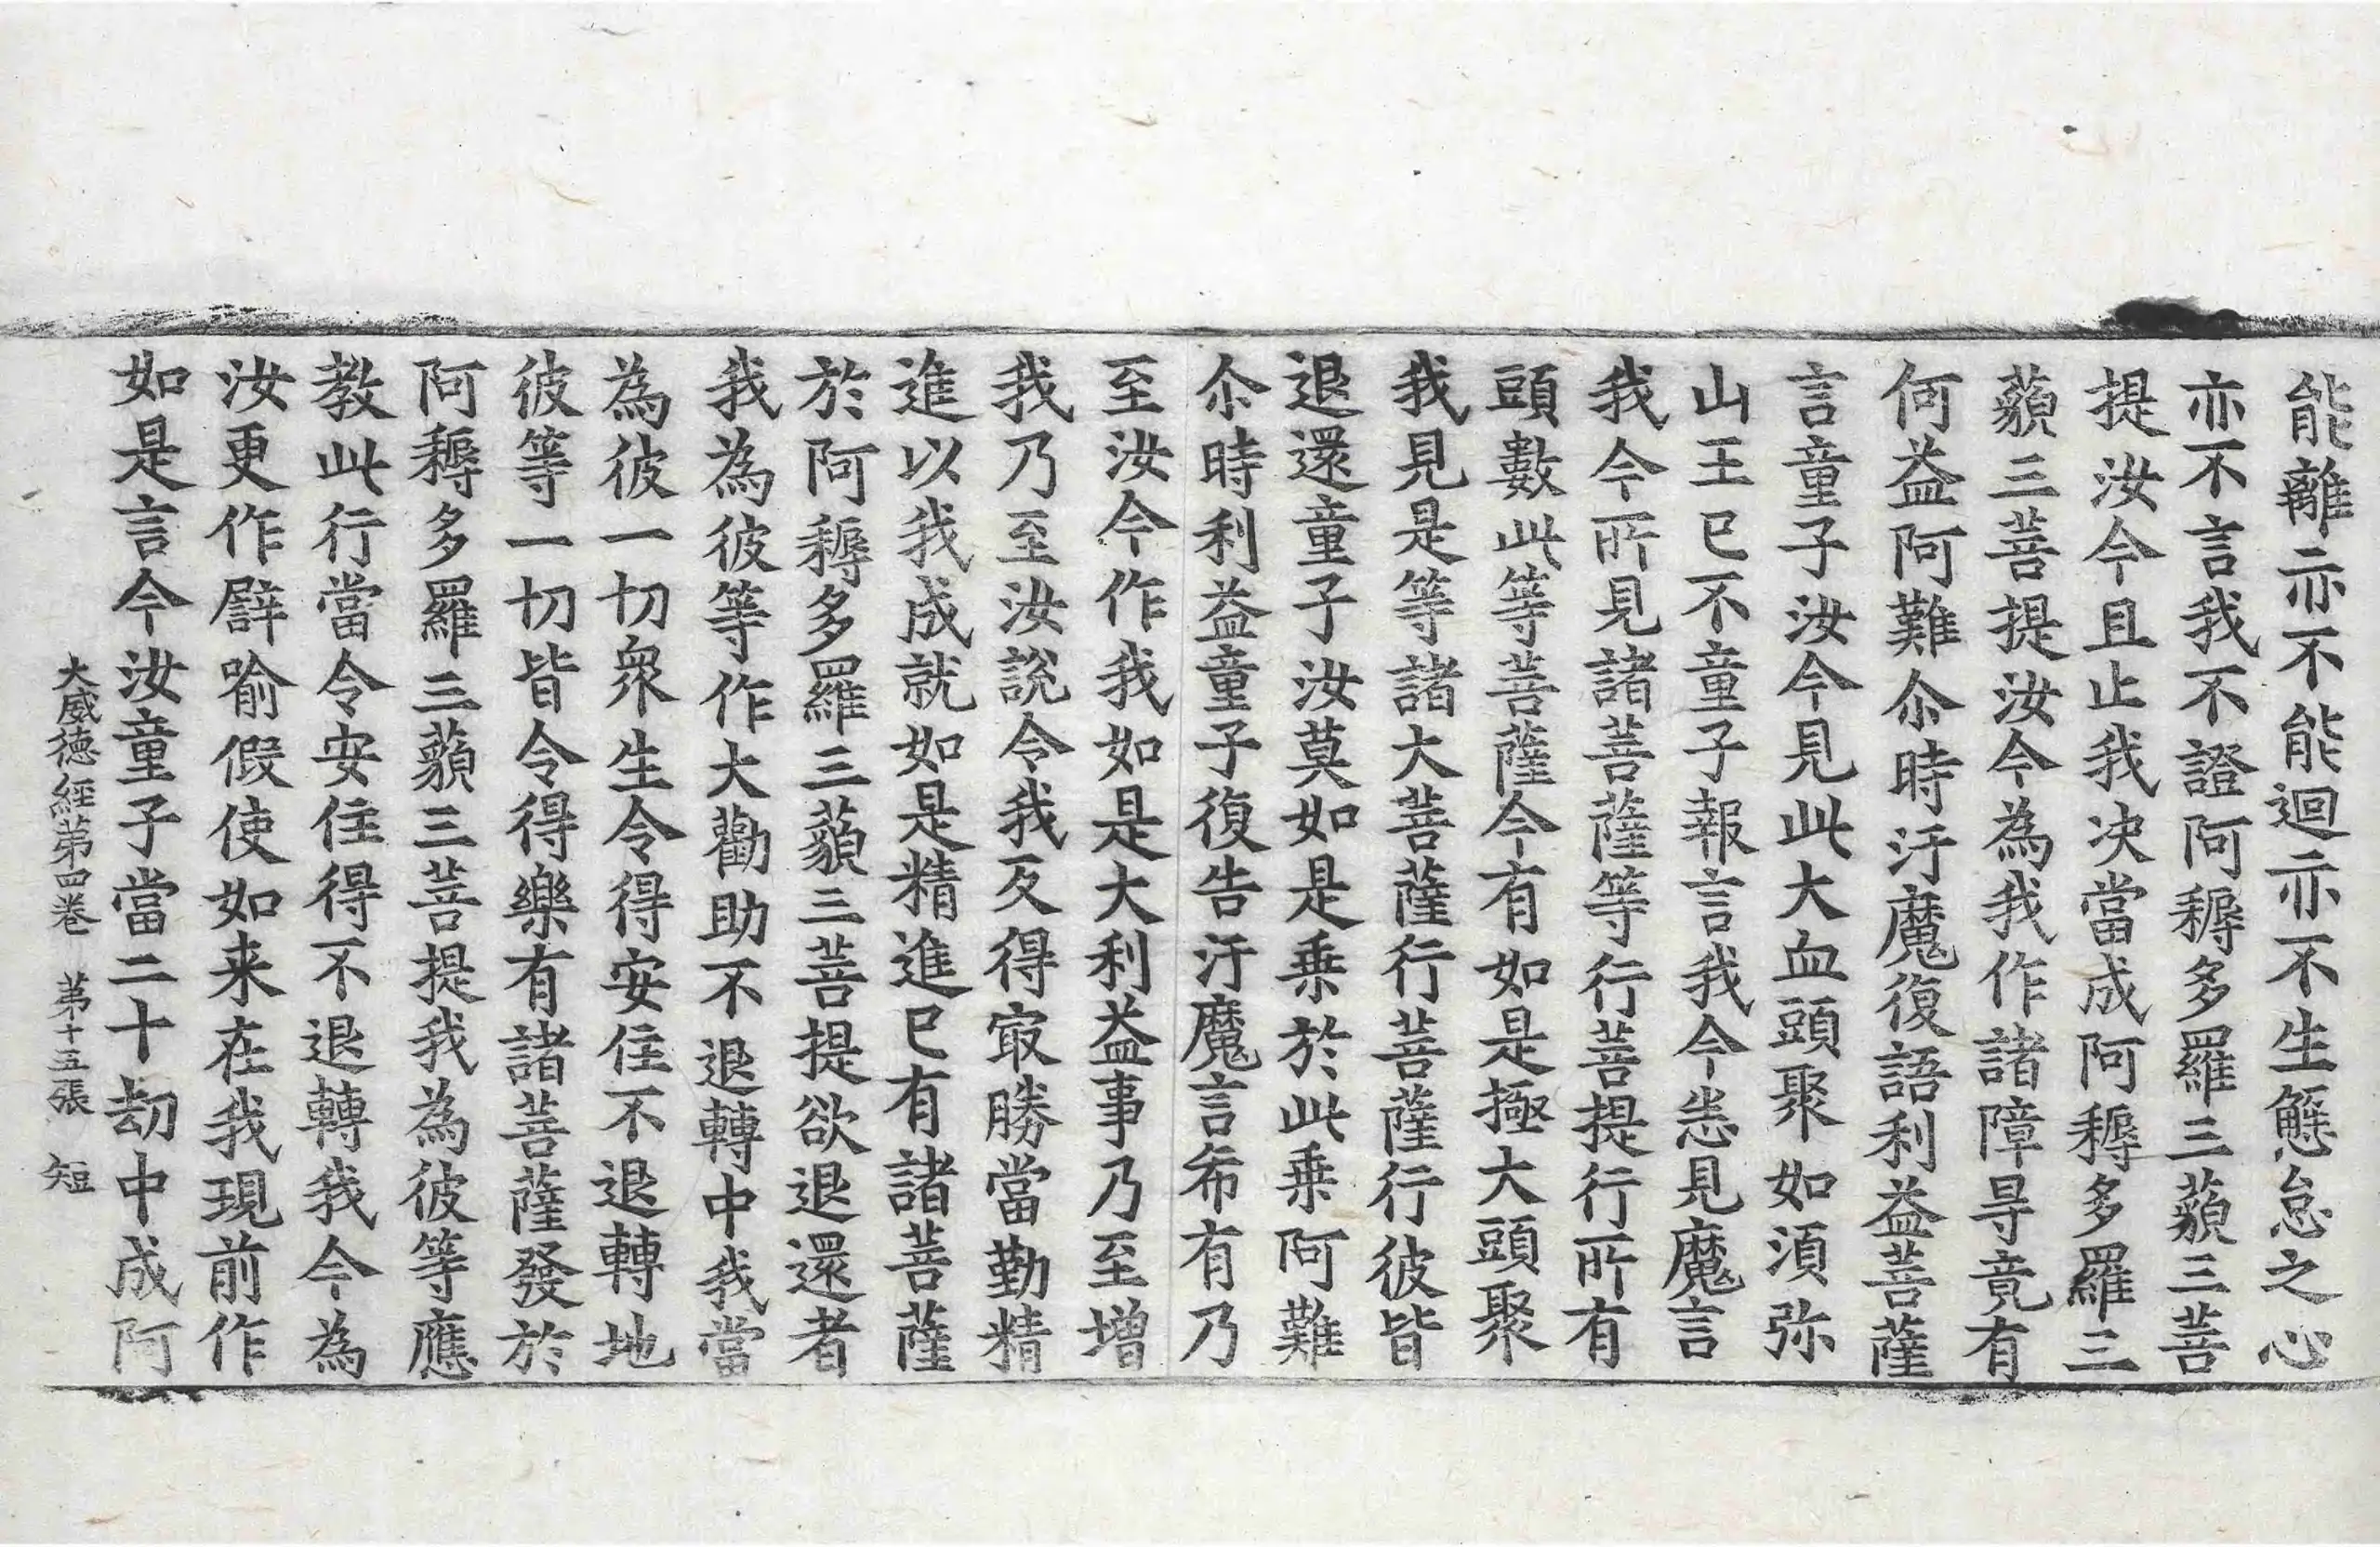 能離亦不能迴亦不生懈怠之心
亦不言我不證阿耨多羅三藐三菩
提汝今且止我决當成阿耨多羅三
藐三菩提汝今為我作諸障㝵竟有
何益阿難尒時汙魔復語利益菩薩
言童子汝今見此大血頭聚如湏弥
山王已不童子報言我今悉見魔言
我今所見諸菩薩等行菩提行所有
頭數此等菩薩今有如是極大頭聚
我見是等諸大菩薩行菩薩行彼皆
退還童子汝莫如是乗於此乗阿難
尒時利益童子復告汙魔言希有乃
至汝今作我如是大利益事乃至增
我乃至汝說令我反得㝡勝當勤精
進以我成就如是精進已有諸菩薩
於阿耨多羅三藐三菩提欲退還者
我為彼等作大勸助不退轉中我當
為彼一切衆生令得安住不退轉地
彼等一切皆令得樂有諸菩薩發於
阿耨多羅三藐三菩提我為彼等應
教此行當令安住得不退轉我今為
汝更作譬喻假使如来在我現前作
如是言今汝童子當二十劫中成阿
大威德經第四卷 第十五張 短